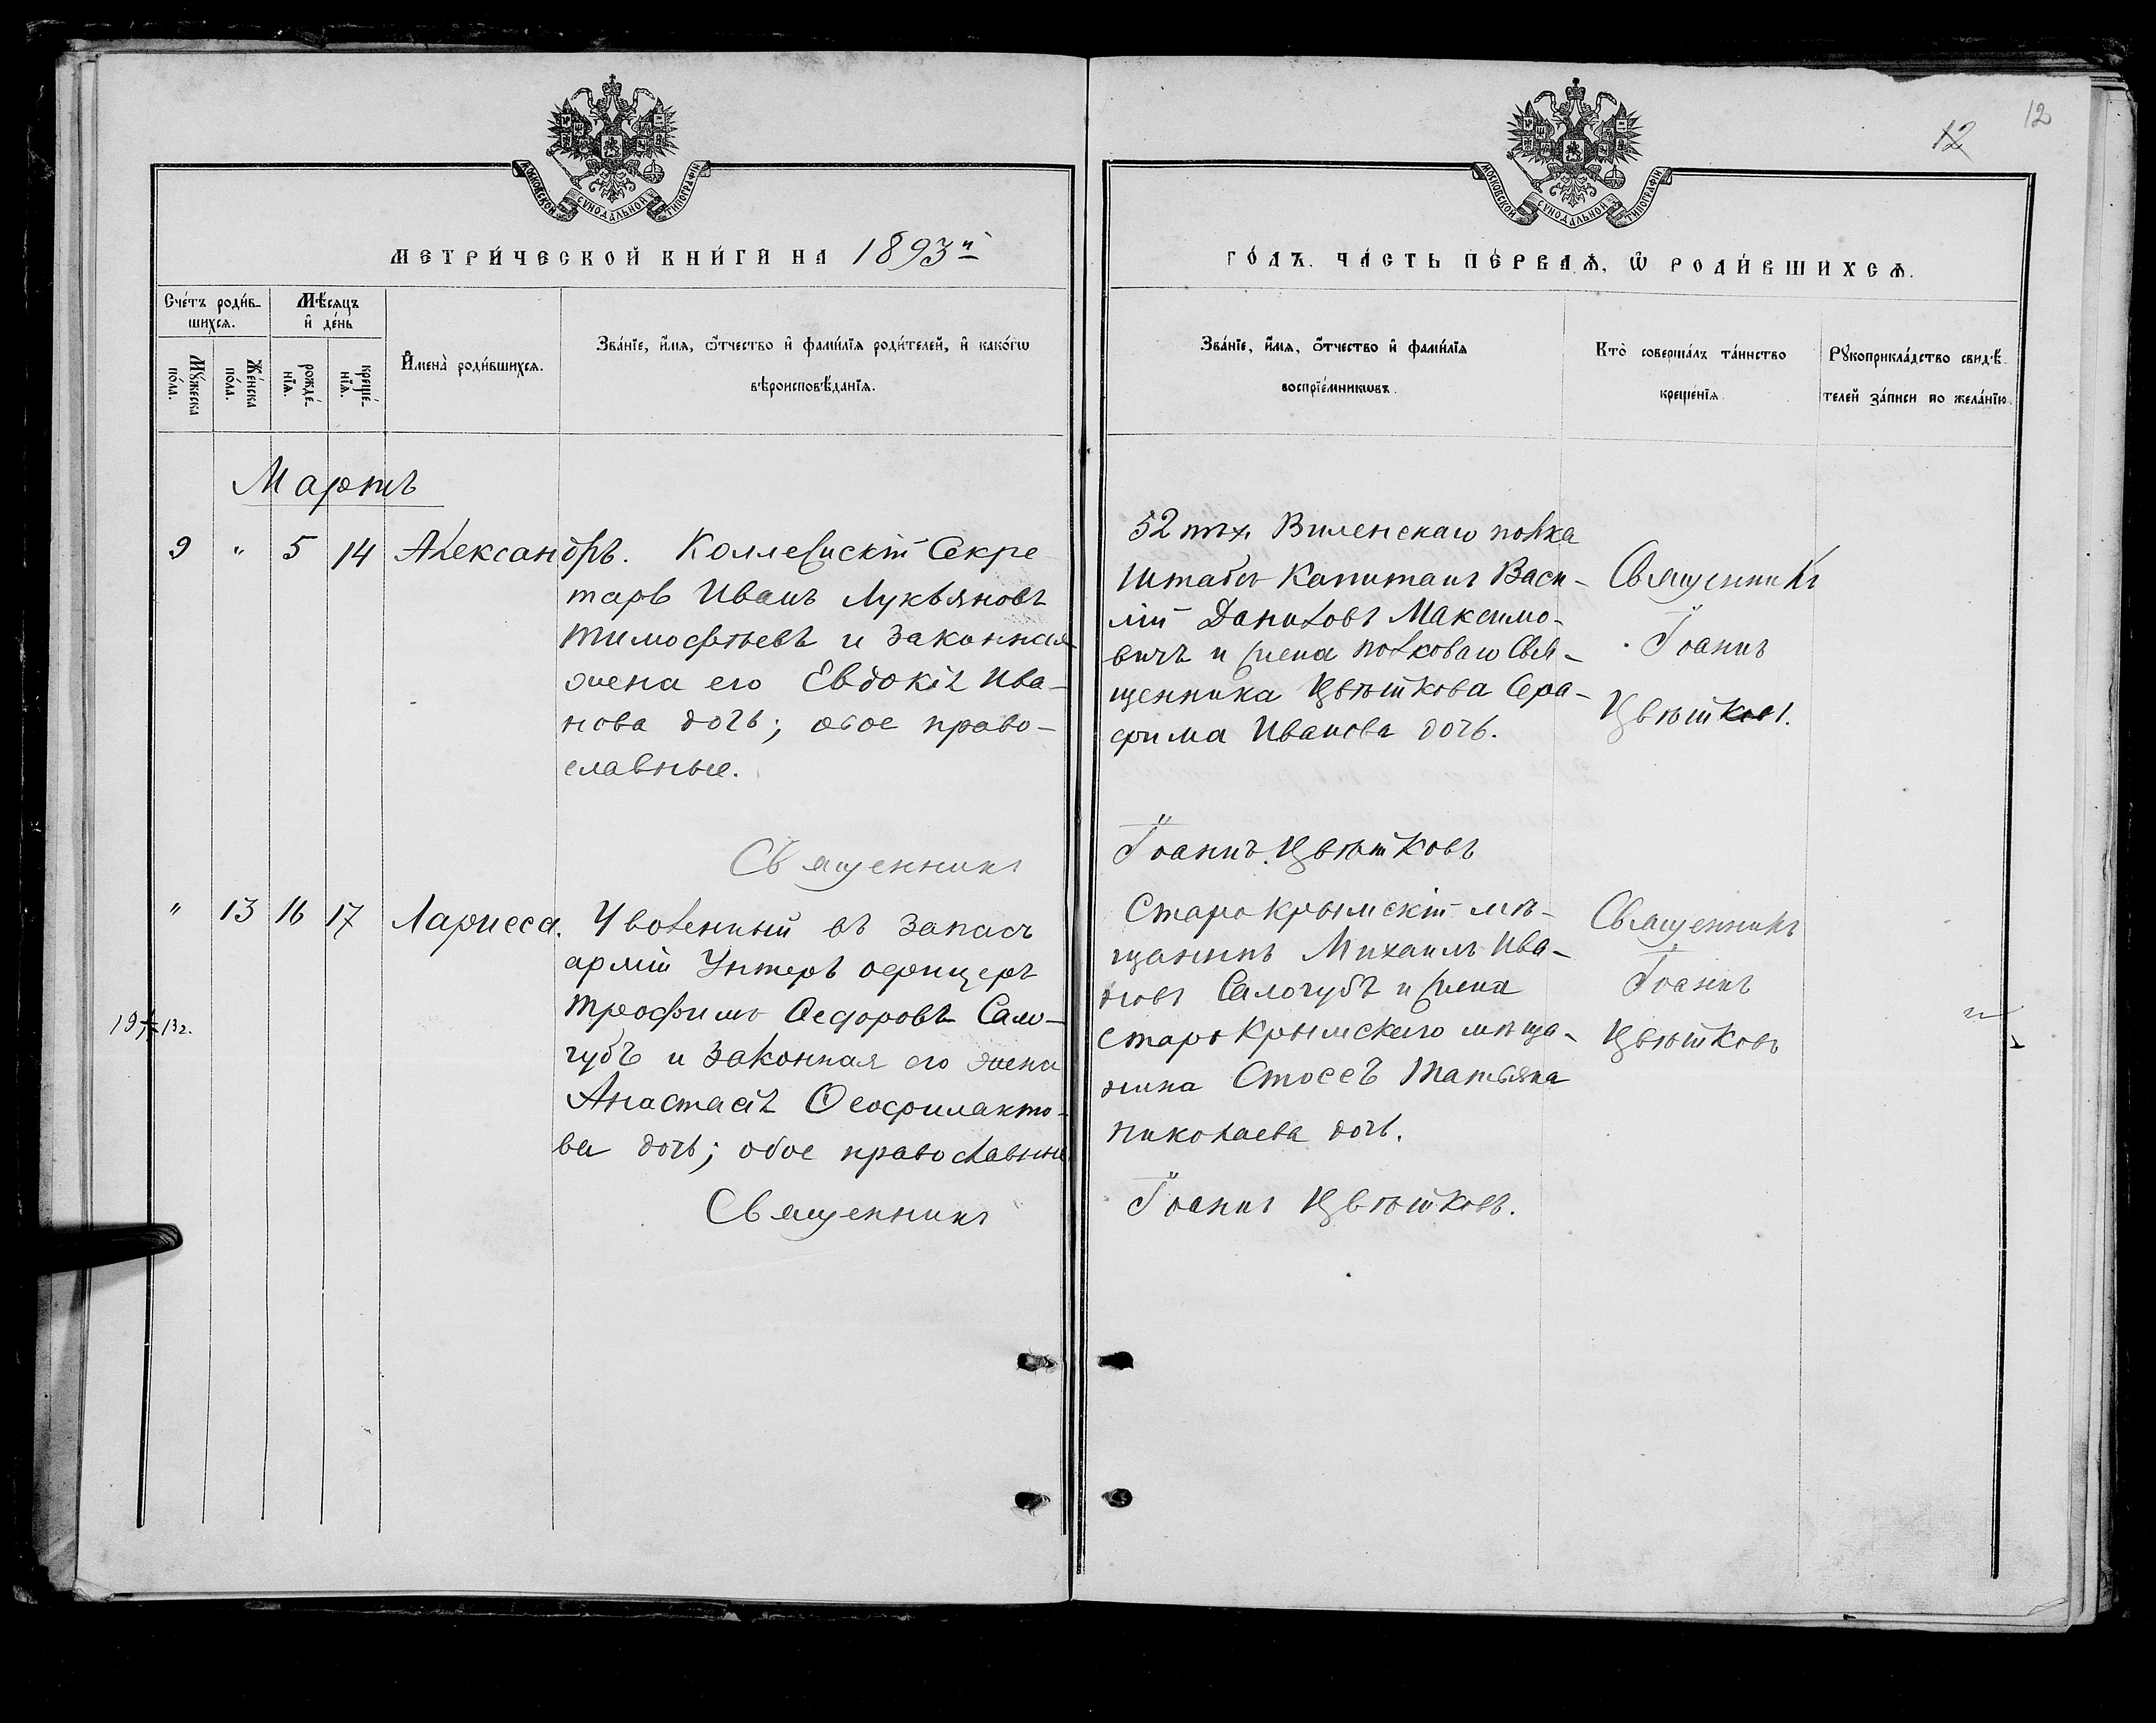 12
12
МОСКОВСКОЙ СѴНОДАЛЬНОЙ ТИПОГРАФІИ
МОСКОВСКОЙ СѴНОДАЛЬНОЙ ТИПОГРАФІИ
МЕТРИ́ЧЕСКОЙ КНИ́ГИ НА 1893й
ГО́ДЪ, ЧА́СТЬ ПЕ́РВАѦ, Ѡ҆ РОДИ́ВШИХСѦ.
Сче́тъ роди́в-
шихсѧ.
Мꙋ́жеска
по́ла.
Же́нска
по́ла.
Мѣ́сѧцъ
и҆ де́нь
рожде́-
нїѧ.
креще́-
нїѧ.
И҆мена̀ роди́вшихсѧ.
Зва́нїе, и҆́мѧ, ѻ҆́тчество и҆ фами́лїѧ роди́телей, и҆ како́гѡ
вѣроисповѣ́данїѧ.
Зва́нїе, и҆́мѧ, ѻ҆́тчество и҆ фами́лїѧ
воспрїе́мникѡвъ.
Кто̀ соверша́лъ та́инство
креще́нїѧ.
Рꙋкоприкла́дство свидѣ́-
телей за́писи по жела́нїю.
Мартъ
9 " 5 14 Александръ. Коллежскій Секре
тарь Иванъ Лукьяновъ
Тимофѣевъ и законная
жена его Евдокія Ива-
нова дочь; обое право-
славные.
Священникъ
52 пѣх. Виленскаго полка
Штабсъ Капитанъ Васи-
лій Даниловъ Максимо-
вичъ и жена полковаго Свя-
щенника Цвѣткова Сера-
фима Иванова дочь.
Іоаннъ Цвѣтковъ
Священникъ
Іоаннъ
Цвѣтковъ.
" 13 16 17 Ларисса. Уволенный въ запасъ
арміи Унтеръ офицеръ
Трофимъ Ѳедоровъ Сало-
губъ и законная его жена
Анастасія Ѳеофилакто-
ва дочь; обое православные
Священникъ
Старокрымскій мѣ-
щанинъ Михаилъ Ива-
новъ Салогубъ и жена
Старокрымскаго мѣща-
нина Стосеъ Татьяна
Николаева дочь.
Іоаннъ Цвѣтковъ.
Священникъ
Іоаннъ
Цвѣтковъ